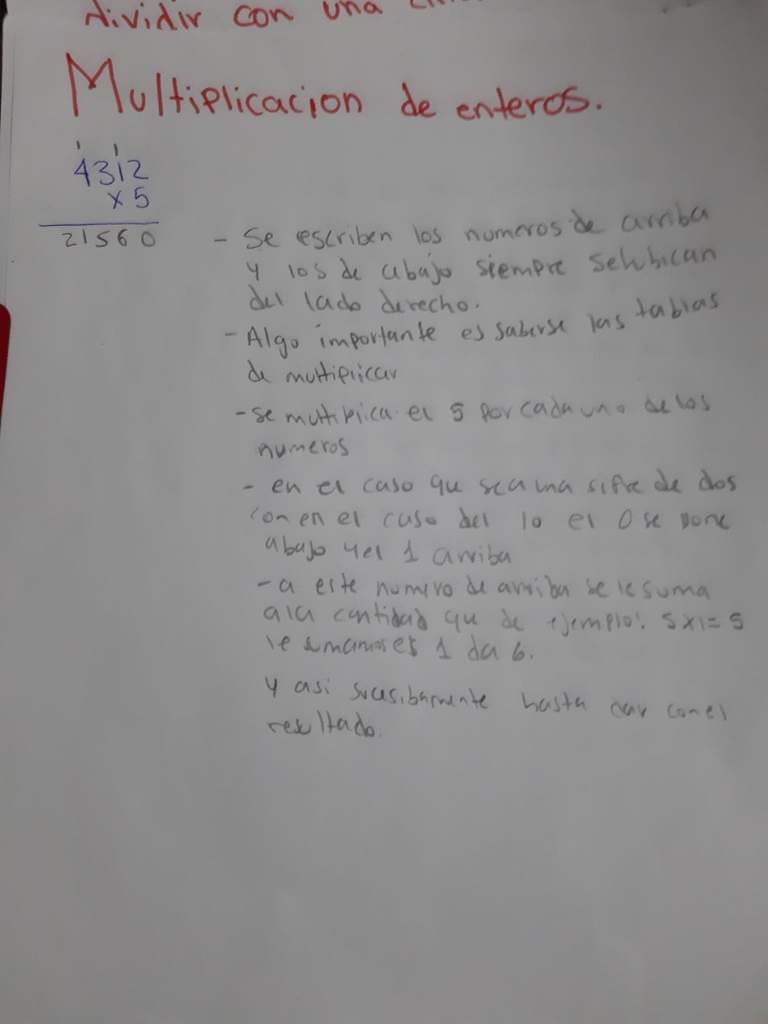 dividir con una
Multiplicacion de enteros.
1 1
4312
x 5
21560
- Se escriben los numeros de arriba
y los de abajo siempre se hubican
del lado derecho.
- Algo importante es saberse las tablas
de multiplicar
- se multiplica el 5 por cada uno de los
numeros
- en el caso que sea una sifra de dos
con en el caso del 10 el 0 se pone
abajo y el 1 arriba
- a este numero de arriba se le suma
a la cantidad que de ejemplo: 5x1=5
le sumamos el 1 da 6.
y asi susesibamente hasta dar con el
resultado.